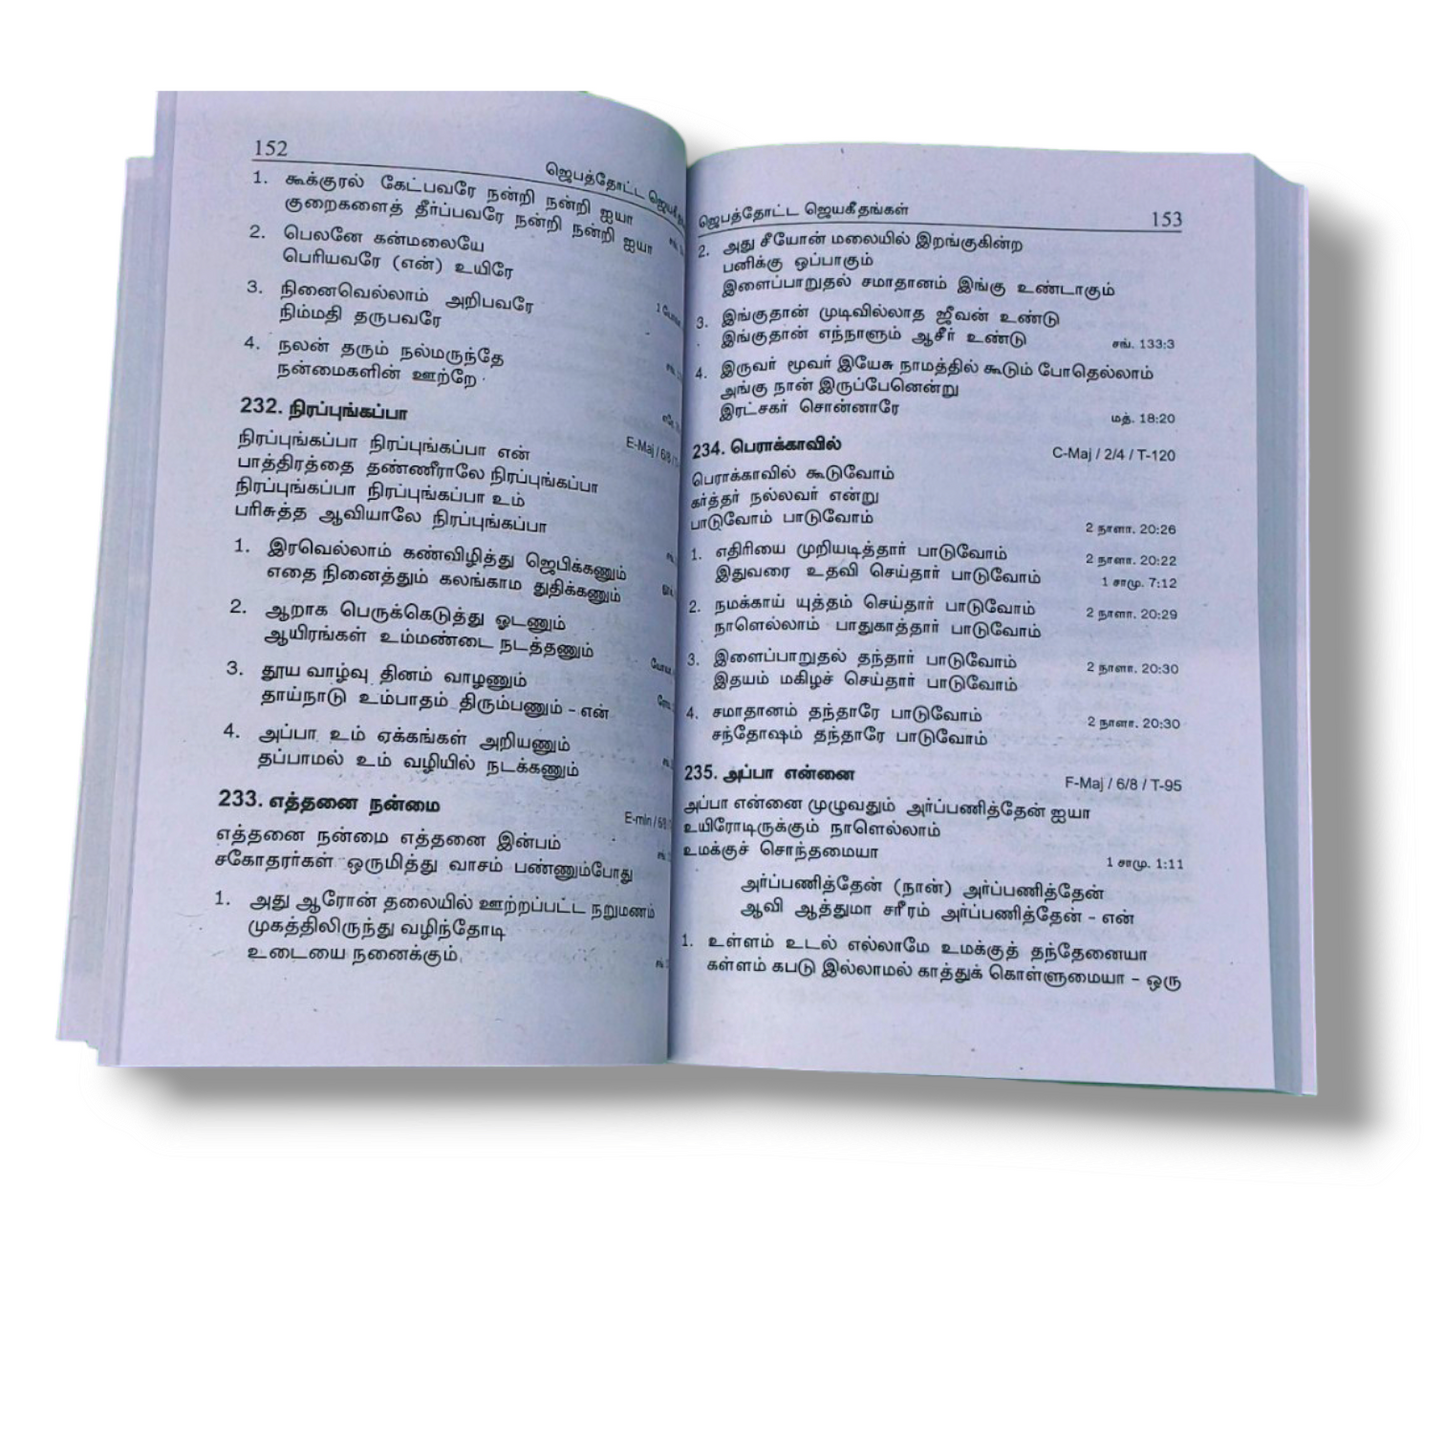 152
ஜெபத்தோட்ட
1. கூக்குரல் கேட்பவரே நன்றி நன்றி ஐயா
குறைகளைத் தீர்ப்பவரே நன்றி நன்றி ஐயா
2. பெலனே கன்மலையே
பெரியவரே (என்) உயிரே
3. நினைவெல்லாம் அறிபவரே
நிம்மதி தருபவரே
4. நலன் தரும் நல்மருந்தே
நன்மைகளின் ஊற்றே
232. நிரப்புங்கப்பா
E-Maj / 6/8
நிரப்புங்கப்பா நிரப்புங்கப்பா என்
பாத்திரத்தை தண்ணீராலே நிரப்புங்கப்பா
நிரப்புங்கப்பா நிரப்புங்கப்பா உம்
பரிசுத்த ஆவியாலே நிரப்புங்கப்பா
1. இரவெல்லாம் கண்விழித்து ஜெபிக்கணும்
எதை நினைத்தும் கலங்காம துதிக்கணும்
2. ஆறாக பெருக்கெடுத்து ஓடணும்
ஆயிரங்கள் உம்மண்டை நடத்தணும்
3. தூய வாழ்வு தினம் வாழணும்
தாய்நாடு உம்பாதம் திரும்பணும் - என்
4. அப்பா உம் ஏக்கங்கள் அறியணும்
தப்பாமல் உம் வழியில் நடக்கணும்
233. எத்தனை நன்மை
E-min
எத்தனை நன்மை எத்தனை இன்பம்
சகோதரர்கள் ஒருமித்து வாசம் பண்ணும்போது
1. அது ஆரோன் தலையில் ஊற்றப்பட்ட நறுமணம்
முகத்திலிருந்து வழிந்தோடி
உடையை நனைக்கும்
ஜெபத்தோட்ட ஜெயகீதங்கள் 153
2. அது சீயோன் மலையில் இறங்குகின்ற
பனிக்கு ஒப்பாகும்
இளைப்பாறுதல் சமாதானம் இங்கு உண்டாகும்
3. இங்குதான் முடிவில்லாத ஜீவன் உண்டு
இங்குதான் எந்நாளும் ஆசீர் உண்டு சங். 133:3
4. இருவர் மூவர் இயேசு நாமத்தில் கூடும் போதெல்லாம்
அங்கு நான் இருப்பேனென்று
இரட்சகர் சொன்னாரே மத். 18:20
234. பெராக்காவில் C-Maj / 2/4 / T-120
பெராக்காவில் கூடுவோம்
கர்த்தர் நல்லவர் என்று
பாடுவோம் பாடுவோம் 2 நாளா. 20:26
1. எதிரியை முறியடித்தார் பாடுவோம் 2 நாளா. 20:22
இதுவரை உதவி செய்தார் பாடுவோம் 1 சாமு. 7:12
2. நமக்காய் யுத்தம் செய்தார் பாடுவோம் 2 நாளா. 20:29
நாளெல்லாம் பாதுகாத்தார் பாடுவோம்
3. இளைப்பாறுதல் தந்தார் பாடுவோம் 2 நாளா. 20:30
இதயம் மகிழச் செய்தார் பாடுவோம்
4. சமாதானம் தந்தாரே பாடுவோம் 2 நாளா. 20:30
சந்தோஷம் தந்தாரே பாடுவோம்
235. அப்பா என்னை F-Maj / 6/8 / T-95
அப்பா என்னை முழுவதும் அர்ப்பணித்தேன் ஐயா
உயிரோடிருக்கும் நாளெல்லாம்
உமக்குச் சொந்தமையா 1 சாமு. 1:11
அர்ப்பணித்தேன் (நான்) அர்ப்பணித்தேன்
ஆவி ஆத்துமா சரீரம் அர்ப்பணித்தேன் - என்
1. உள்ளம் உடல் எல்லாமே உமக்குத் தந்தேனையா
கள்ளம் கபடு இல்லாமல் காத்துக் கொள்ளுமையா - ஒரு